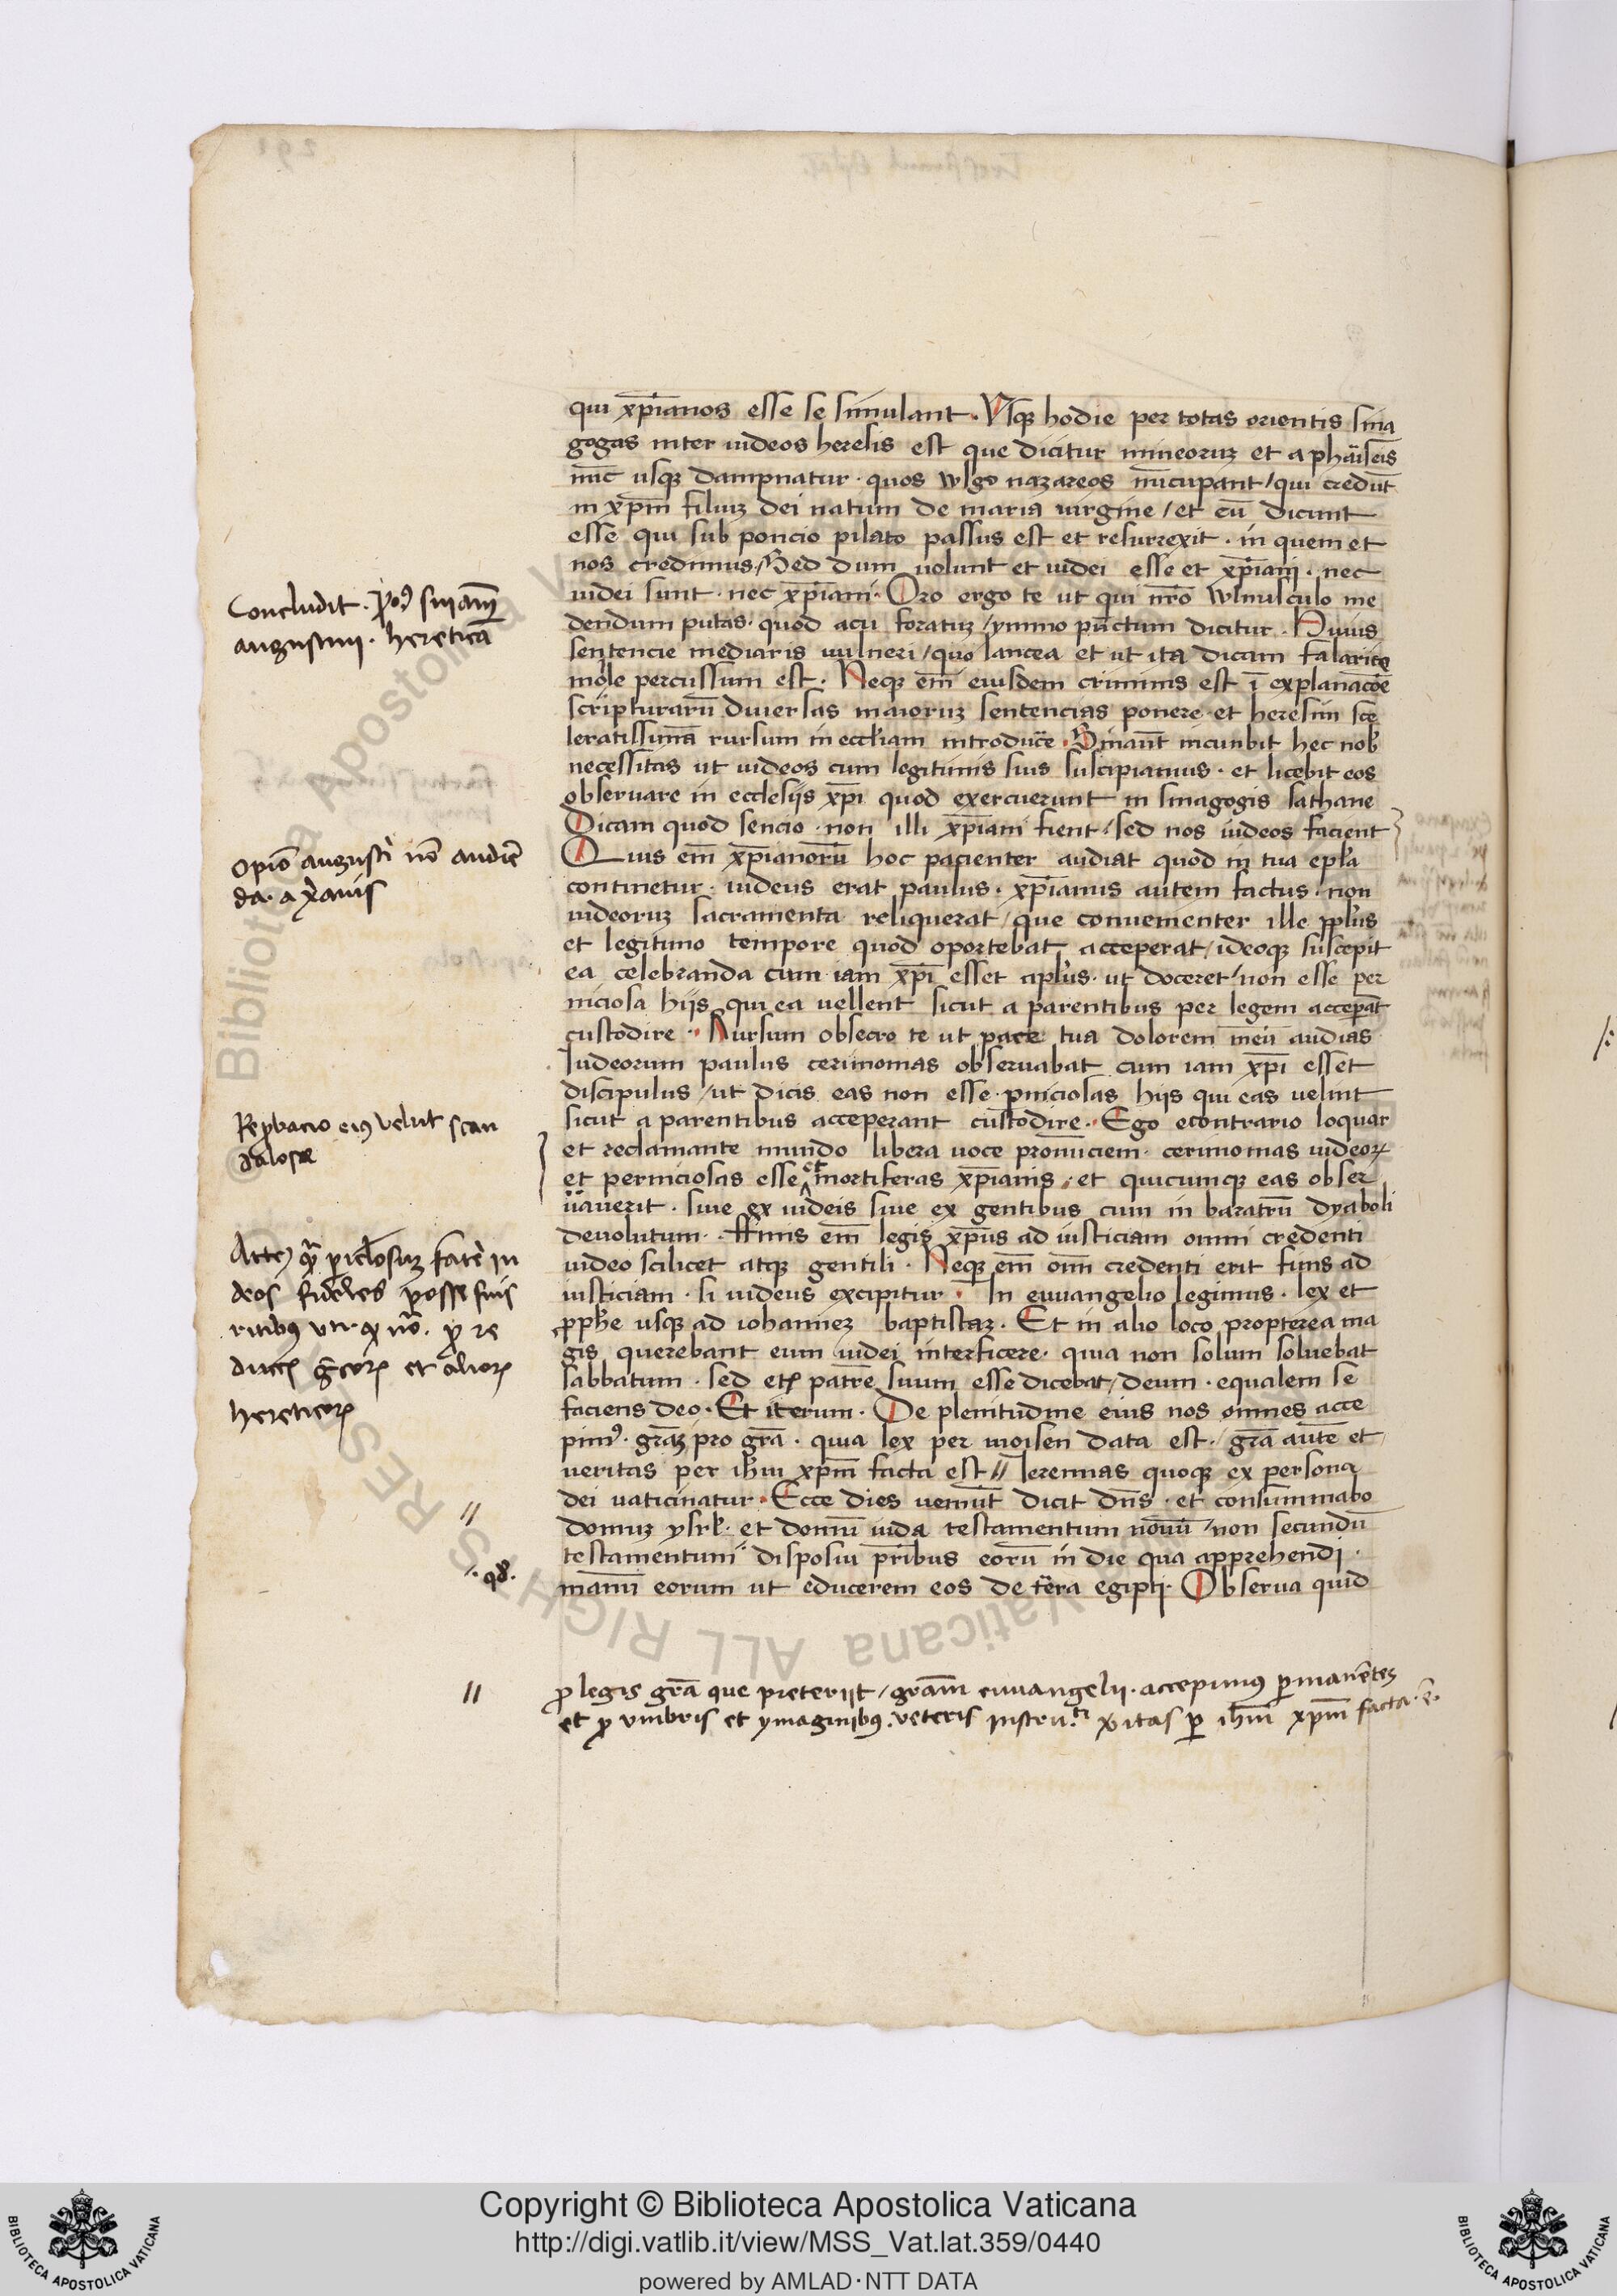 qui xp̄ianos esse se simulant. Vsq3 hodie per totas orientis sina
gogas inter iudeos heresis est que dicitur mineoruʒ et a pharis̄eis
nūc usq3 dampnatur · quos wlgo nazareos nūcupant / qui credūt
in xp̄m filiuʒ dei natum de maria uirgine / et eū dicunt
esse qui sub poncio pilato passus est et resurrexit · in quem et
nos credimus / Sed dum uolunt et iudei esse et xp̄iani · nec
iudei sunt · nec xp̄iani · Oro ergo te ut qui nr̄o wlnusculo me
dendum putas · quod acu foratuʒ / ymmo pūctum dicitur · Huius
sentencie mediaris uulneri / quo lancea et ut ita dicam falarice
mole percussum est · Neq3 em̄ eiusdem criminis est ī explanac̄oe
scripturarū diuersas maioruʒ sentencias ponere · et heresim sce
leratissimā rursum in eccl̄iam introduc̄e · Sinaūt incunbit hec nob̄
necessitas ut iudeos cum legitimis suis suscipiamus · et licebit eos
obseruare in ecclesijs xp̄i quod exercuerunt in sinagogis sathane
Dicam quod sencio · non illi xp̄iani fient / sed nos iudeos facient
Quis em̄ xp̄ianorū hoc pacienter audiat quod in tua ep̄la
continetur · iudeus erat paulus · xp̄ianus autem factus · non
iudeoruʒ sacramenta reliquerat / que conuenienter ille pp̄lus
et legitimo tempore quod oportebat acceperat / ideoq3 suscepit
ea celebranda cum iam xp̄i esset apl̄us · ut doceret / non esse per
niciosa hijs qui ea uellent sicut a parentibus per legem accepāt
custodire · Rursum obsecro te ut pace tua dolorem meū audias
Iudeorum paulus cerimonias obseruabat cum iam xp̄i esset
discipulus / ut dicis eas non esse p̱niciosas hijs qui eas uelint
sicut a parentibus acceperant custodire · Ego econtrario loquar
et reclamante mundo libera uoce pronūciem · cerimonias iudeoꝝ
et perniciosas esse et mortiferas xp̄ianis · et quicumq3 eas obser
uauerit · siue ex iudeis siue ex gentibus eum in baratrū dyaboli
deuolutum · ffinis em̄ legis xp̄us ad iusticiam omni credenti
iudeo scilicet atq3 gentili · Neq3 em̄ om̄i credenti erit finis ad
iusticiam · si iudeus excipitur · In euuangelio legimus · lex et
ꝓph̄e usq3 ad iohanneʒ baptistaʒ · Et in alio loco propterea ma
gis querebant eum iudei interficere · quia non solum soluebat
sabbatum · sed etꝫ patrē suum esse dicebat / deum · equalem se
faciens deo · Et iterum · De plenitudine eius nos omnes acce
pimꝰ · gr̄aʒ pro gr̄a · quia lex per moisen data est · / gr̄a autē et
ueritas per ih̄m xp̄m facta est // Ieremias quoq3 ex persona
dei uaticinatur · Ecce dies ueniūt dicit dn̄s · et consummabo
domuʒ ysrl̄ · et domū iuda testamentum nouū / non secundū
testamentum ⸫ disposui pr̄ibus eorū in die qua apprehendi ·
manū eorum ut educerem eos de tēra egipti · Obserua quid
ꝓ legis gr̄a que preteriit / gr̄am euuangelii · accepimꝰ p̱manētes
et ꝓ vmbris et ymaginibꝰ · veteris instru.ti v̄itas p̱ ih̄m xp̄m facta · ē ·
Concludit · ꝓo9 sn̄iam
augustini · heretica
opiō augusti nō audiē
da · a xp̄anis
Reꝓbacio eiꝰ velut scan
dalose
deos fideles posse suis
ritibꝰ vti · qꝫ nō · ꝓ re
ductꝫ grecoꝝ et alioꝝ
hereticoꝝ
//
⸫ qđ.
//
Copyright © Biblioteca Apostolica Vaticana
http://digi.vatlib.it/view/MSS_Vat.lat.359/0440
powered by AMLAD·NTT DATA
BIBLIOTECA APOSTOLICA VATICANA
BIBLIOTECA APOSTOLICA VATICANA